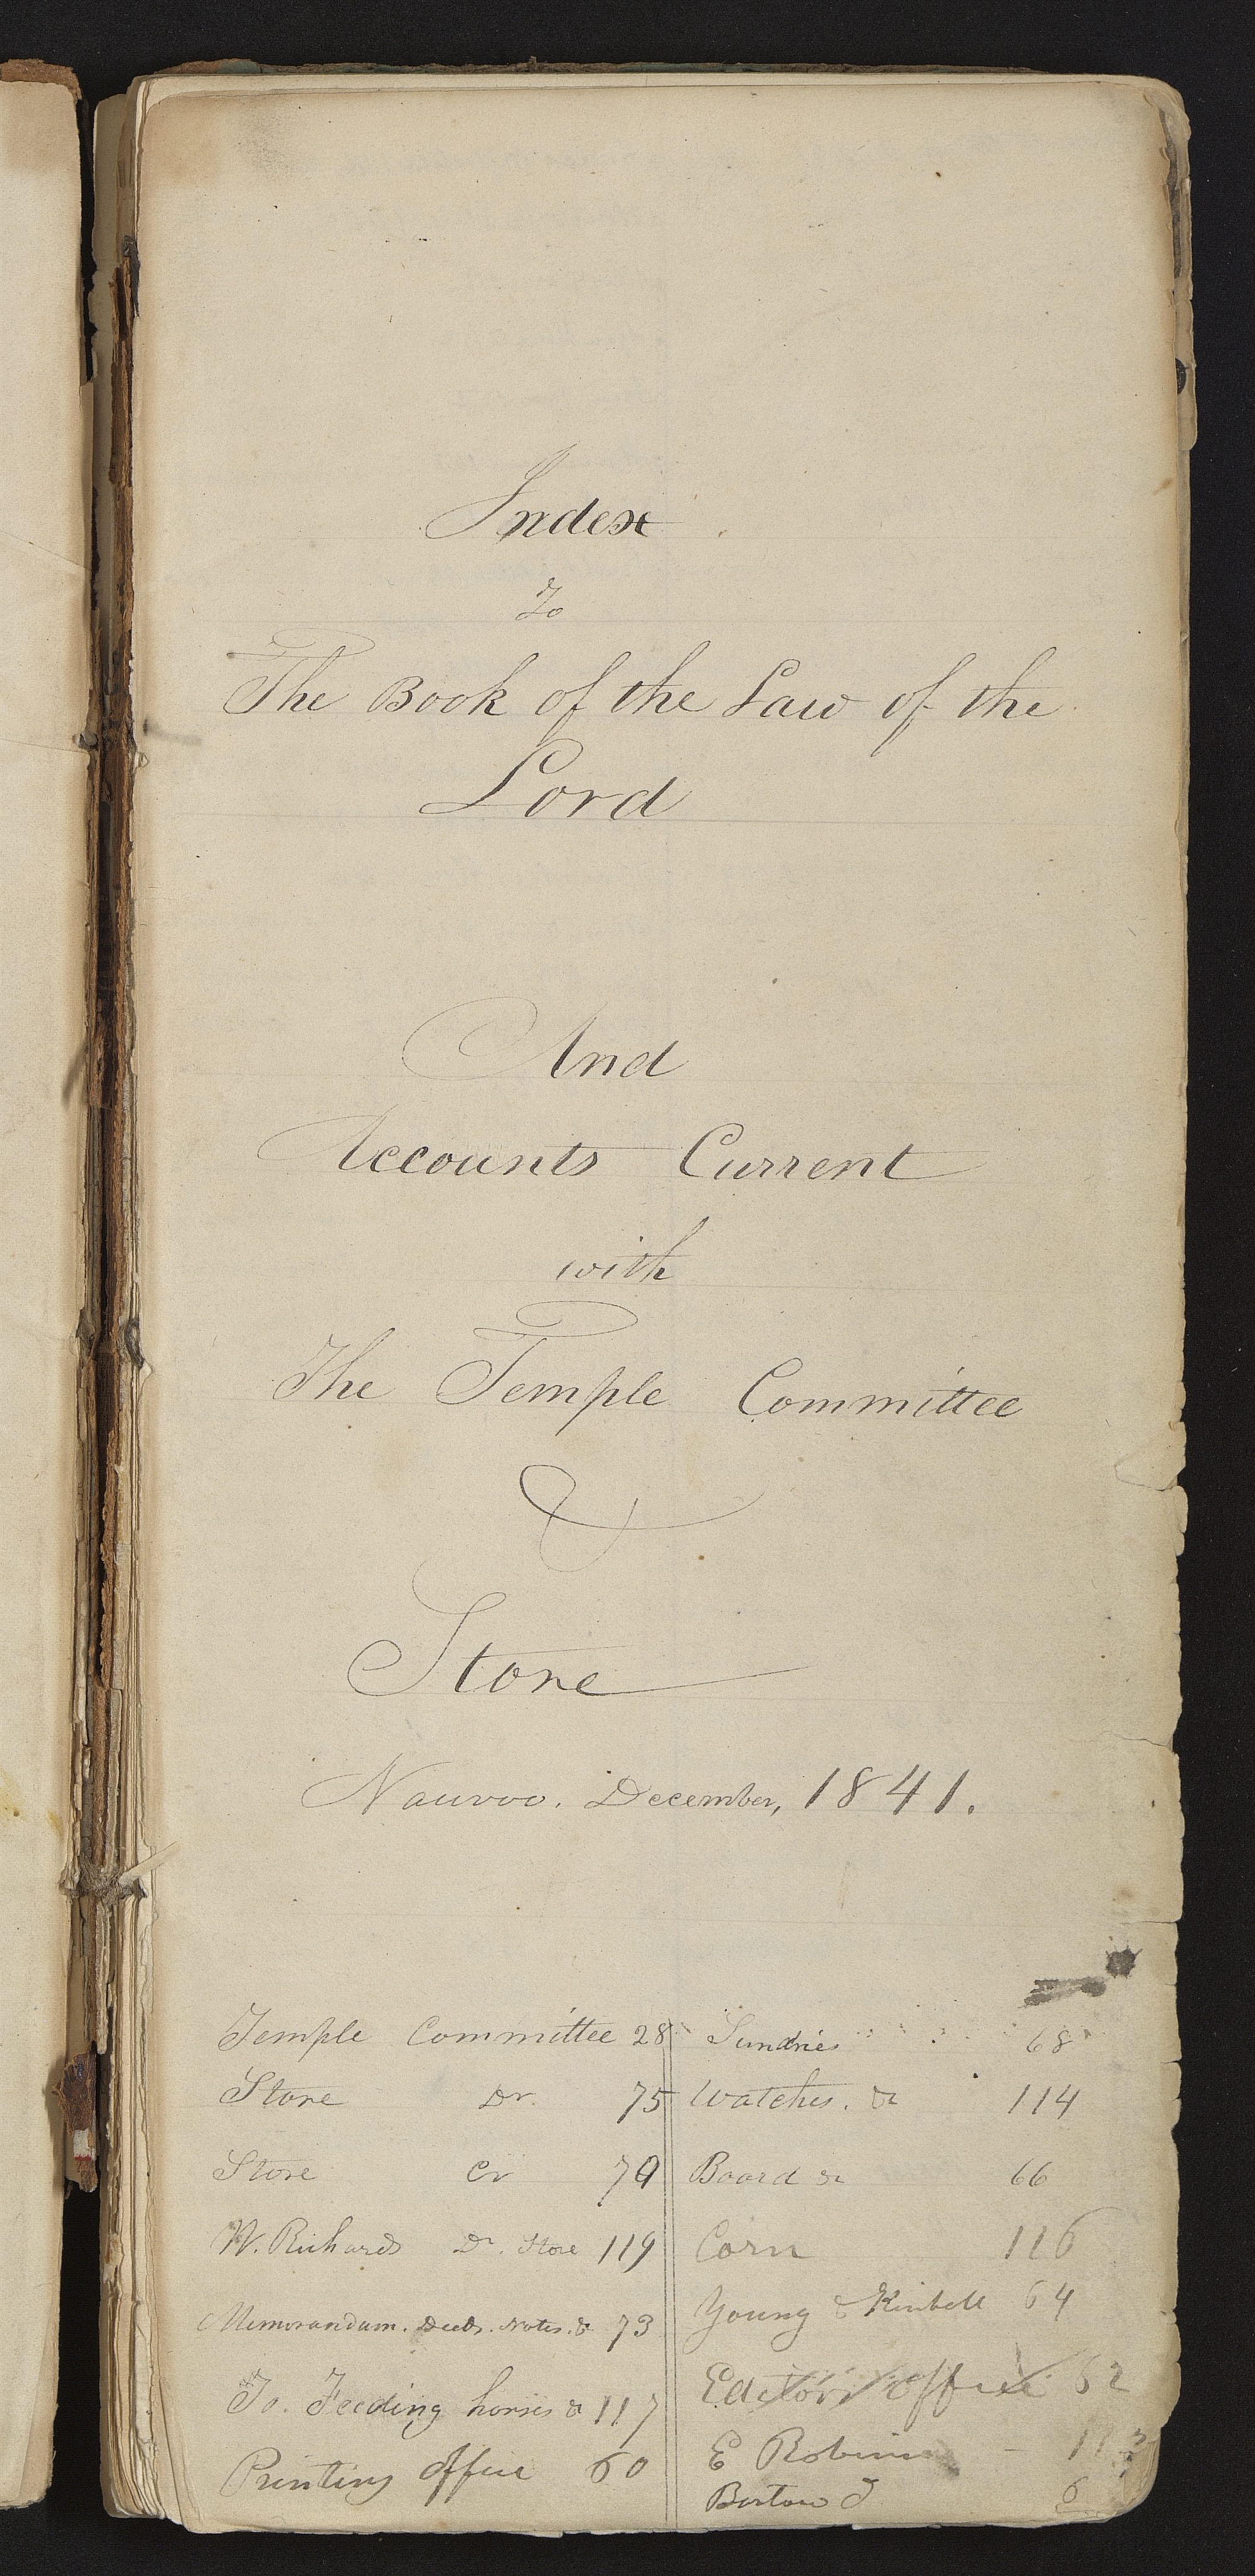 Index
To
The Book of the Law of the
Lord
And
Accounts Current
with
The Temple Committee
&
Store
Nauvoo. December, 1841.
Temple Committee 28
Store Dr. 75
Store Cr 79
W. Richards Dr. Store 119
Memorandum. Deeds. Notes. & 73
To. Feeding horses & 117
Printing office 60
Sundries 68
Watches. & 114
Board & 66
Corn 116
Young & Kimball 64
Editors office 62
E Robinson